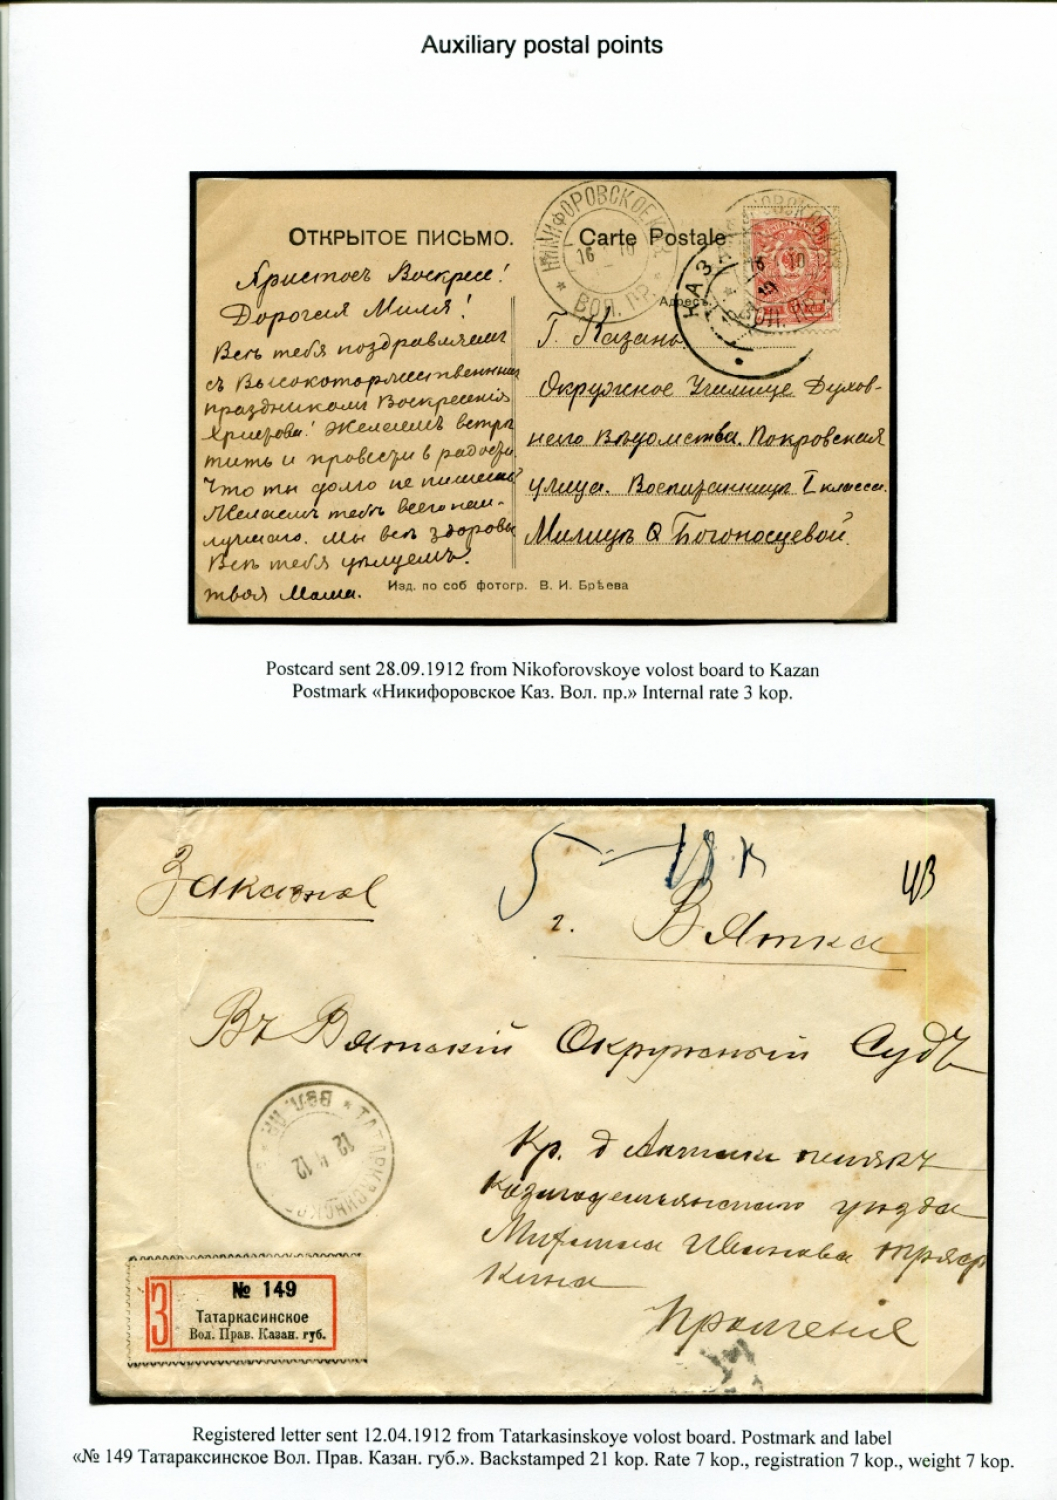 Auxiliary postal points
ОТКРЫТОЕ ПИСЬМО.
Carte Postale
НИКИФОРОВСКОЕ КАЗ.
16 10
ВОЛ. ПР.
КАЗ
Адресъ
Христосъ Воскресе!
Дорогая Миля!
Всѣ тебя поздравляемъ
съ Высокоторжественнымъ
праздникомъ Воскресенія
Христова! Желаемъ встрѣ
тить и провести в радости.
Что ты долго не пишешь
Желаемъ тебѣ всего наи-
лучшаго. Мы всѣ здоровы
Всѣ тебя цѣлуемъ.
твоя Мама.
Г. Казань.
Окружное Училище Духов-
наго Вѣдомства. Покровская
улица. Воспитанницѣ I класса.
Милицѣ Богоносцевой.
Изд. по соб фотогр. В. И. Брѣева
Postcard sent 28.09.1912 from Nikoforovskoye volost board to Kazan
Postmark «Никифоровское Каз. Вол. пр.» Internal rate 3 kop.
Заказное
5 — 18 к
г. Вятка
Въ Вятскій Окружный Судъ
ТАТАРКАСИНСКОЕ
ВОЛ. ПР.
12 4 12
Кр. д
Козмодемьянскаго уѣзда
Иванова
кина
Прошеніе
З
№ 149
Татаркасинское
Вол. Прав. Казан. губ.
Registered letter sent 12.04.1912 from Tatarkasinskoye volost board. Postmark and label
«№ 149 Татараксинское Вол. Прав. Казан. губ.». Backstamped 21 kop. Rate 7 kop., registration 7 kop., weight 7 kop.